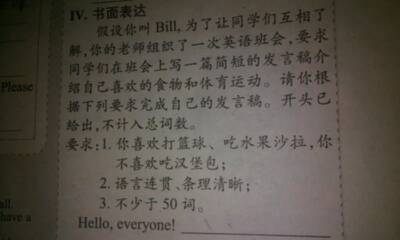 IV. 书面表达
假设你叫 Bill, 为了让同学们互相了
解,你的老师组织了一次英语班会,要求
同学们在班会上写一篇简短的发言稿介
绍自己喜欢的食物和体育运动。请你根
据下列要求完成自己的发言稿。开头已
给出,不计入总词数。
要求:1. 你喜欢打篮球、吃水果沙拉,你
不喜欢吃汉堡包;
2. 语言连贯、条理清晰;
3. 不少于 50 词。
Hello, everyone!
Please
all.
have a